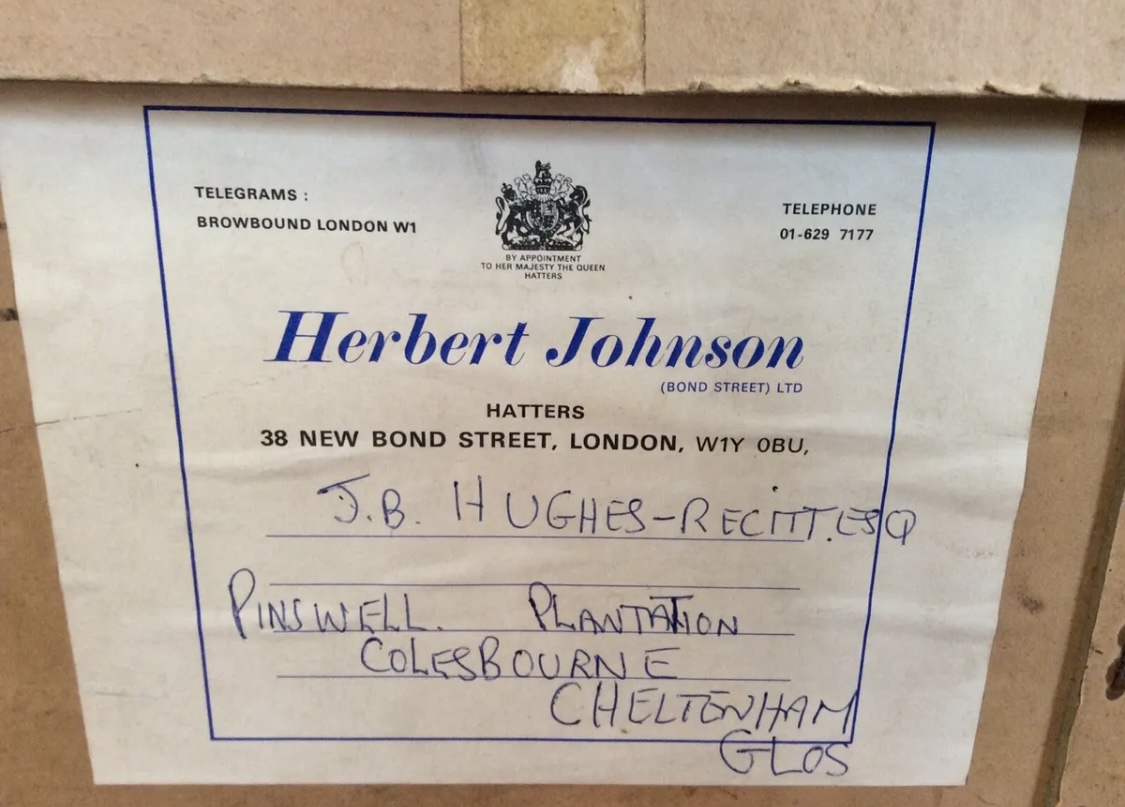 TELEGRAMS :
BROWBOUND LONDON W1
BY APPOINTMENT
TO HER MAJESTY THE QUEEN
HATTERS
TELEPHONE
01-629 7177
Herbert Johnson
(BOND STREET) LTD
HATTERS
38 NEW BOND STREET, LONDON, W1Y 0BU,
J.B. HUGHES-RECITT.ESQ
PINSWELL. PLANTATION
COLESBOURNE
CHELTENHAM
GLOS